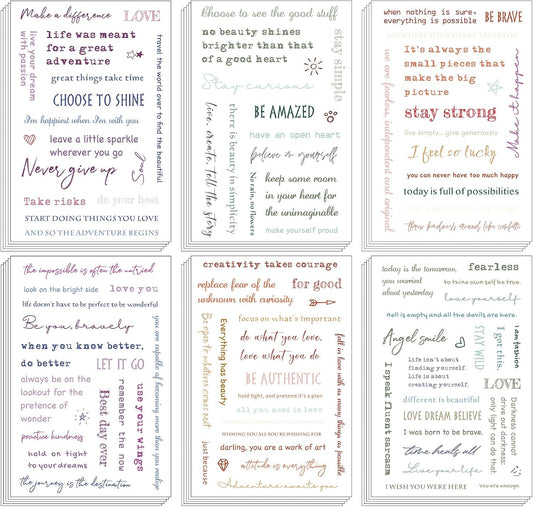 Make a difference
LOVE
live your dream
with passion
life was meant
for a great
adventure
travel the world over to find the beautiful
great things take time
CHOOSE TO SHINE
I'm happiest when I'm with you
leave a little sparkle
wherever you go
Never give up
Soul
Take risks
do your best
START DOING THINGS YOU LOVE
AND SO THE ADVENTURE BEGINS
Choose to see the good stuff
no beauty shines
brighter than that
of a good heart
stay simple
Stay curious
live, create, tell the story
there is beauty in simplicity
No rain, no flowers
BE AMAZED
have an open heart
believe in yourself
keep some room
in your heart for
the unimaginable
make yourself proud
when nothing is sure,
everything is possible
BE BRAVE
GO WHERE YOUR HEART TAKES YOU
we are fearless, independent and original
It's always the
small pieces that
make the big
picture
Make it happen
stay strong
live simply... give generously
I feel so lucky
you can never have too much happy
today is full of possibilities
throw kindness around like confetti
the impossible is often the untried
look on the bright side
love you
life doesn't have to be perfect to be wonderful
Be you, bravely
when you know better,
do better
LET IT GO
you are capable of becoming more than you realize
always be on the
lookout for the
pretence of
wonder
Best day ever
remember the now
use your wings
practice kindness
hold on tight
to your dreams
the journey is the destination
creativity takes courage
replace fear of the
unknown with curiosity
for good
Be open to whatever comes next
Everything has beauty
focus on what's important
do what you love,
love what you do
fall in love with as many things as possible
BE AUTHENTIC
hold tight, and pretend it's a plan
all you need is love
WISHING YOU ALL YOU'RE WISHING FOR
just because
darling, you are a work of art
attitude is everything
Adventure awaits you
today is the tomorrow,
you worried
about yesterday
fearless
to thine own self be true.
love yourself
hell is empty and all the devils are here.
Angel smile
STAY WILD
I got this.
I am fashion
I speak fluent sarcasm
life isn't about
finding yourself.
life is about
creating yourself.
LOVE
different is beautiful
LOVE DREAM BELIEVE
I was born to be brave.
time heals all
Live your life
Darkness cannot
drive out darkness:
only light can do that.
I WISH YOU WERE HERE
You are enough